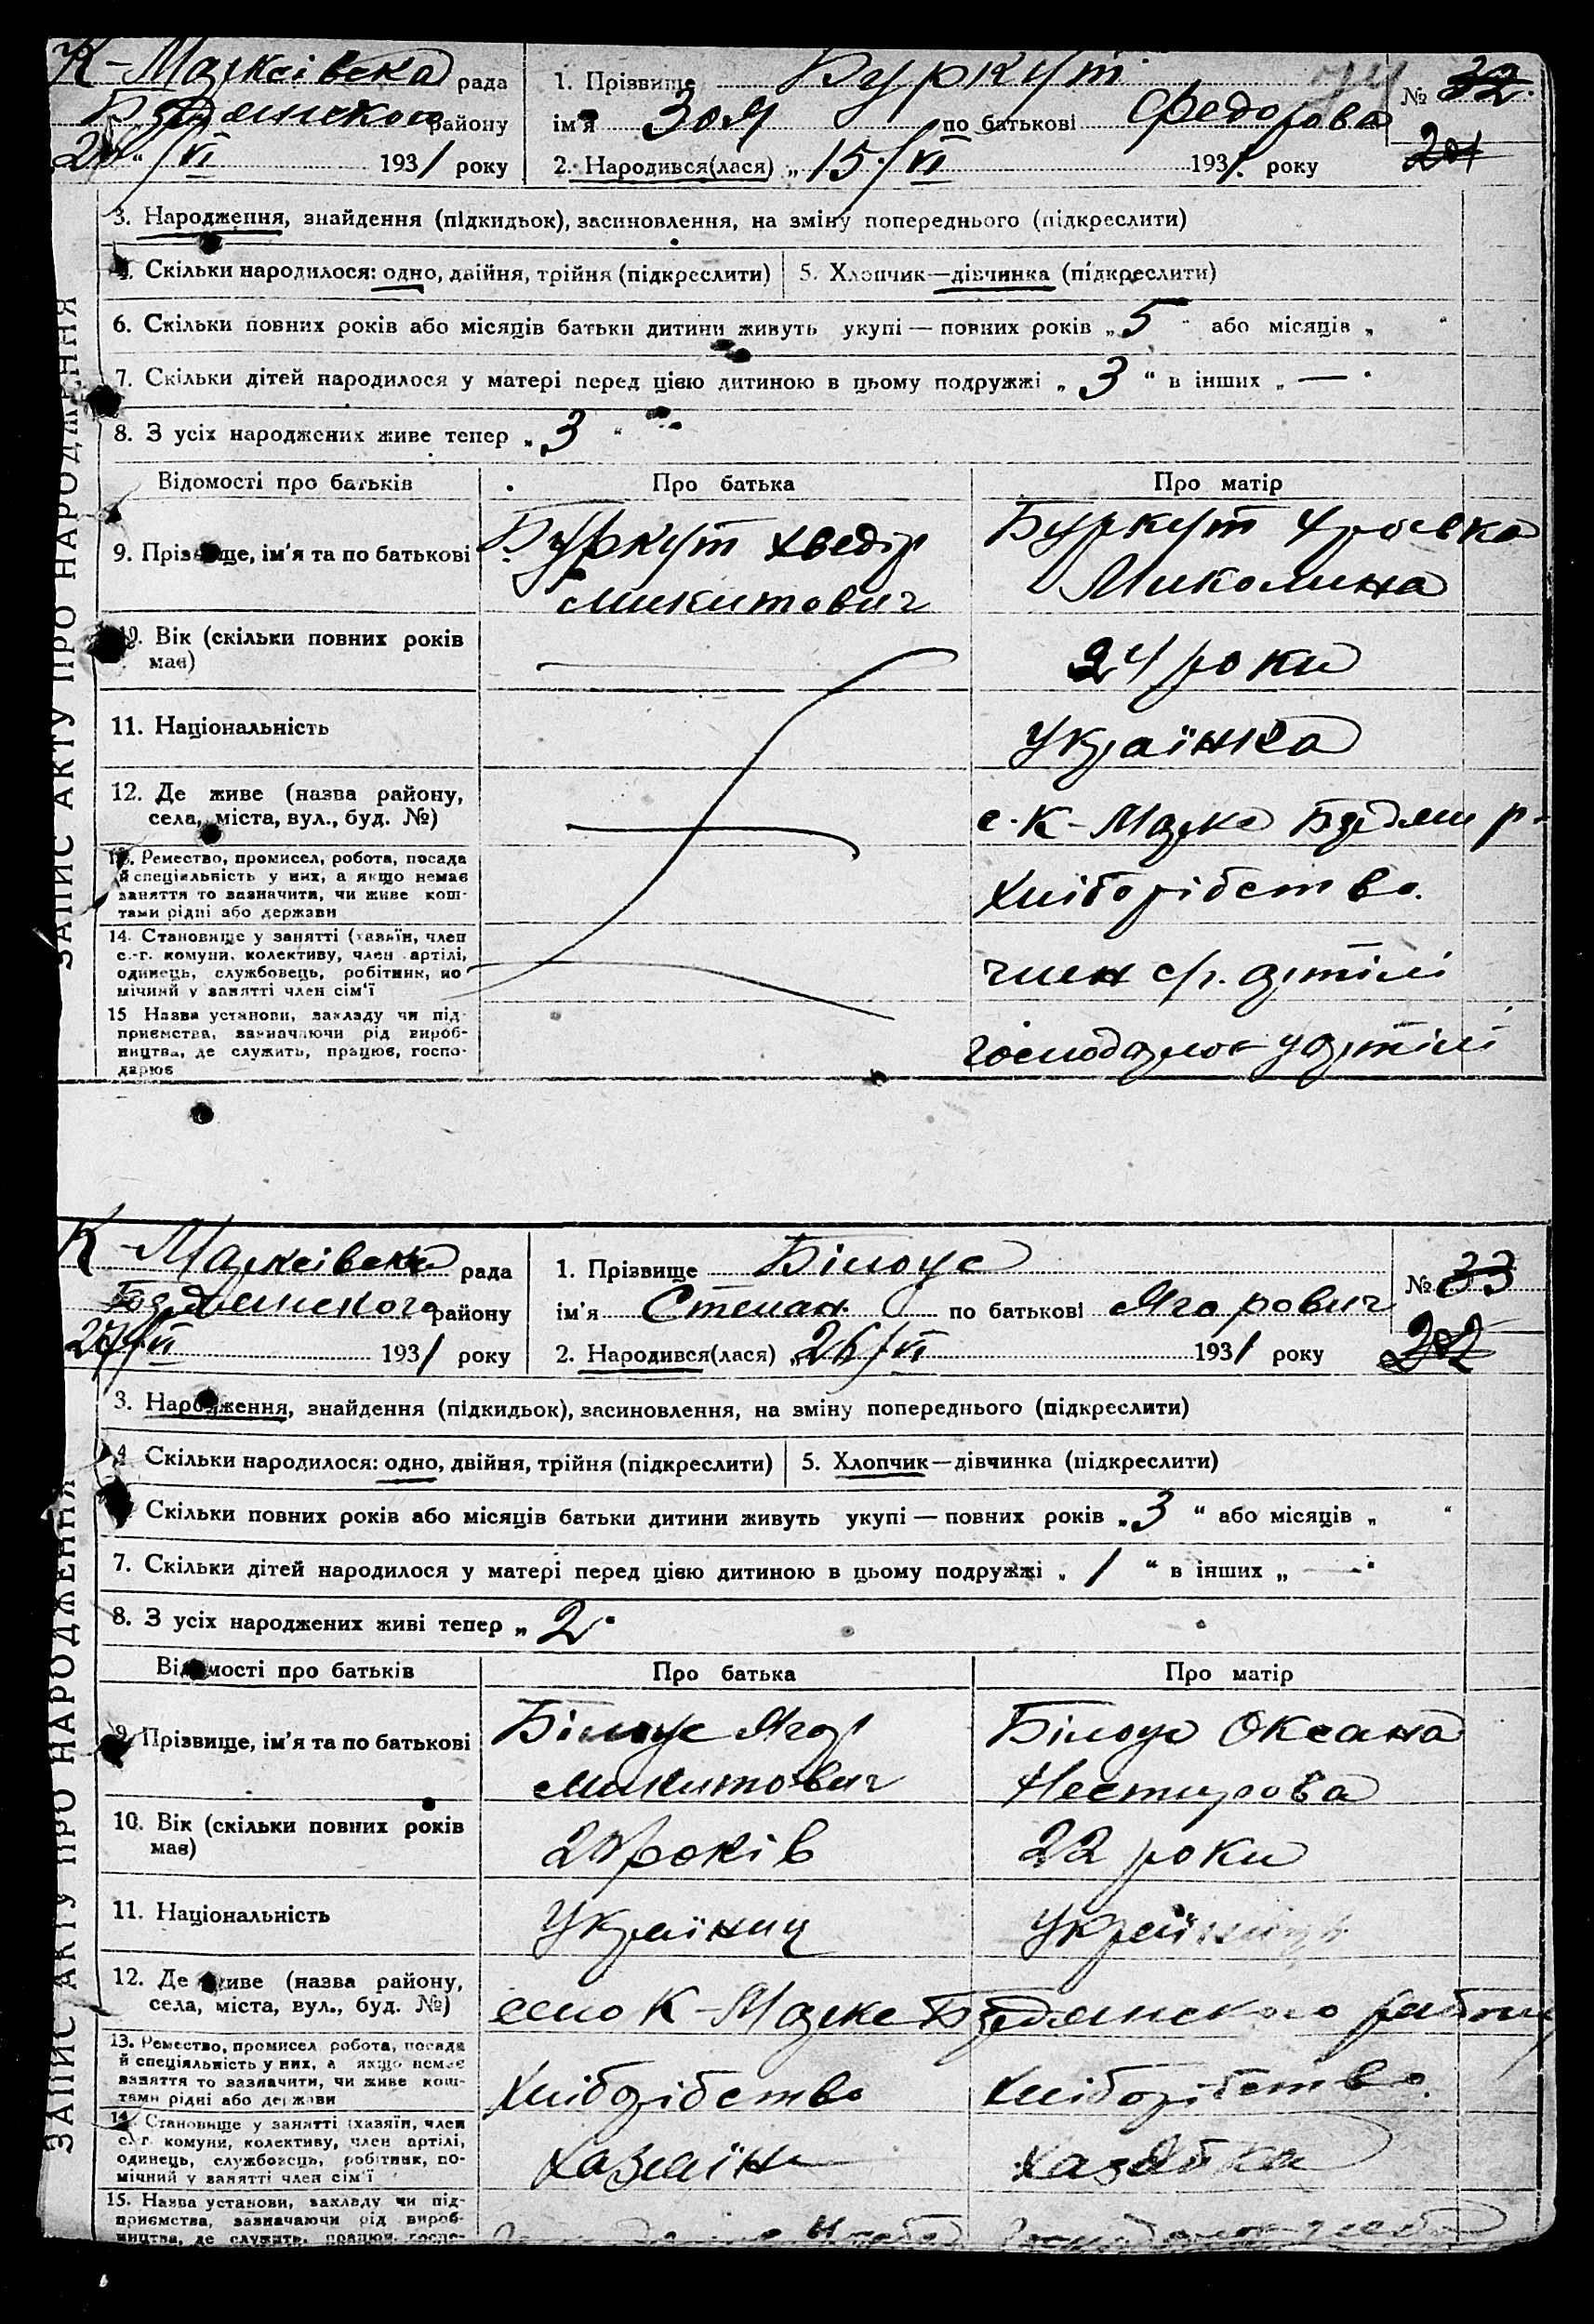 К-Марксівська рада
району
/VI 1931 року
1. Прізвище Буркут
ім'я Зоя по батькові Федорова
2. Народився(лася) „15/VI 1931 року
№ 32
201
ЗАПИС АКТУ ПРО НАРОДЖЕННЯ
3. Народження, знайдення (підкидьок), засиновлення, на зміну попереднього (підкреслити)
4. Скільки народилося: одно, двійня, трійня (підкреслити)
5. Хлопчик—дівчинка (підкреслити)
6. Скільки повних років або місяців батьки дитини живуть укупі — повних років „5“ або місяців „ “
7. Скільки дітей народилося у матері перед цією дитиною в цьому подружжі „3“ в інших „—“
8. З усіх народжених живе тепер „3“
Відомості про батьків Про батька Про матір
9. Прізвище, ім'я та по батькові
Буркут Хведір
Микитович
Буркут
Миколина
10. Вік (скільки повних років
має)
24 роки
11. Національність
Українка
12. Де живе (назва району,
села, міста, вул., буд. №)
с. К-Маркс р.
13. Ремество, промисел, робота, посада
й спеціяльність у них, а якщо немає
заняття то зазначити, чи живе кош-
тами рідні або держави
Хліборібство.
14. Становище у занятті (хазяїн, член
с.-г. комуни, колективу, член артілі,
одинець, службовець, робітник, по
мічний у занятті член сім'ї
член с/г. артілі
15 Назва установи, закладу чи під-
приємства, зазначаючи рід вироб-
ництва, де служить, працює, госпо-
дарює
у артілі
К-Марксівська рада
району
27/VI 1931 року
1. Прізвище Білоус
ім'я Степан по батькові Ягорович
2. Народився(лася) „26/VI 1931 року
№ 33
202
ЗАПИС АКТУ ПРО НАРОДЖЕННЯ
3. Народження, знайдення (підкидьок), засиновлення, на зміну попереднього (підкреслити)
4. Скільки народилося: одно, двійня, трійня (підкреслити)
5. Хлопчик—дівчинка (підкреслити)
Скільки повних років або місяців батьки дитини живуть укупі — повних років „3“ або місяців „ “
7. Скільки дітей народилося у матері перед цією дитиною в цьому подружжі „1“ в інших „—“
8. З усіх народжених живі тепер „2“
Відомості про батьків Про батька Про матір
9. Прізвище, ім'я та по батькові
Білоус Ягор
Микитович
Білоус Оксана
Нестирова
10. Вік (скільки повних років
має)
років
22 роки
11. Національність
Українец
12. Де живе (назва району,
села, міста, вул., буд. №)
село К-Маркс району
13. Ремество, промисел робота, посада
й спеціяльність у них, а якщо немає
заняття то зазначити, чи живе кош-
тами рідні або держави
Хліборібство
Хліборібство.
14. Становище у занятті (хазяїн, член
с.-г. комуни, колективу, член артілі,
одинець, службовець, робітник, по-
мічний у занятті член сім'ї
Хазяїн
Хазяйка
15. Назва установи, закладу чи під-
приємства, зазначаючи рід вироб-
ництва, де служить, працює, госпо-